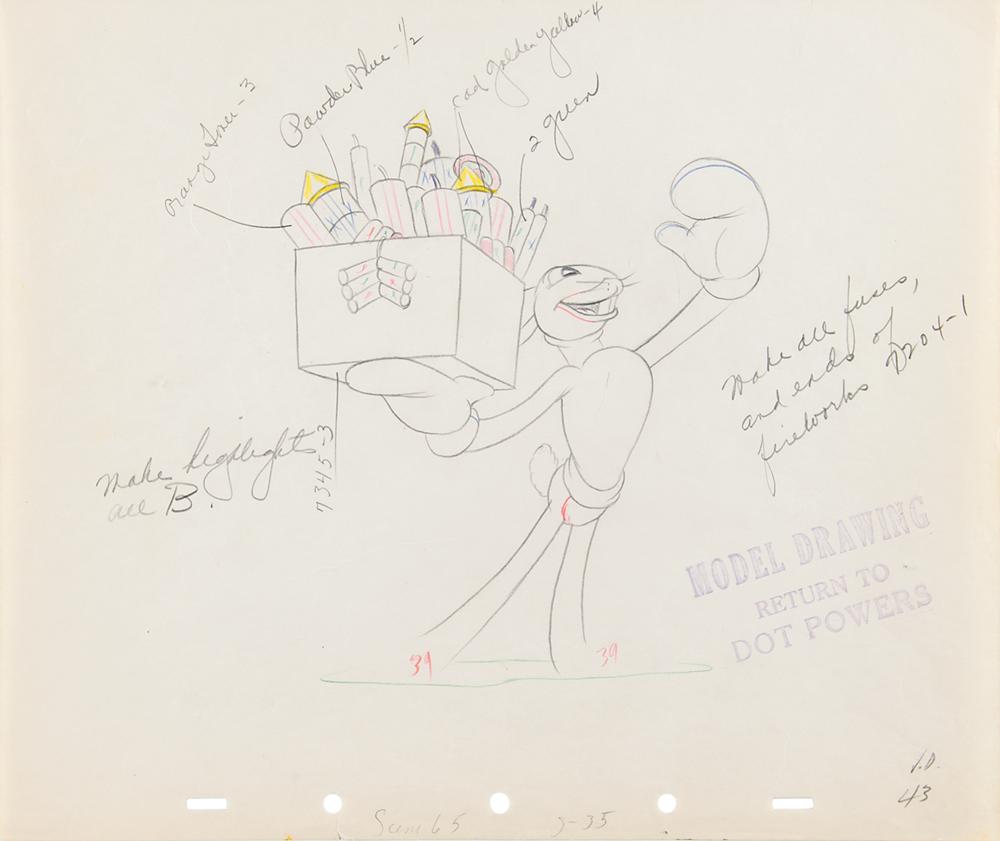 Orange Toner-3
Powder Blue-1/2
cad golden yellow-4
2 green
Make all fuses,
and ends of
fireworks D204-1
Make highlights
all B.
7345-3
MODEL DRAWING
RETURN TO
DOT POWERS
39
39
43
Scene 65